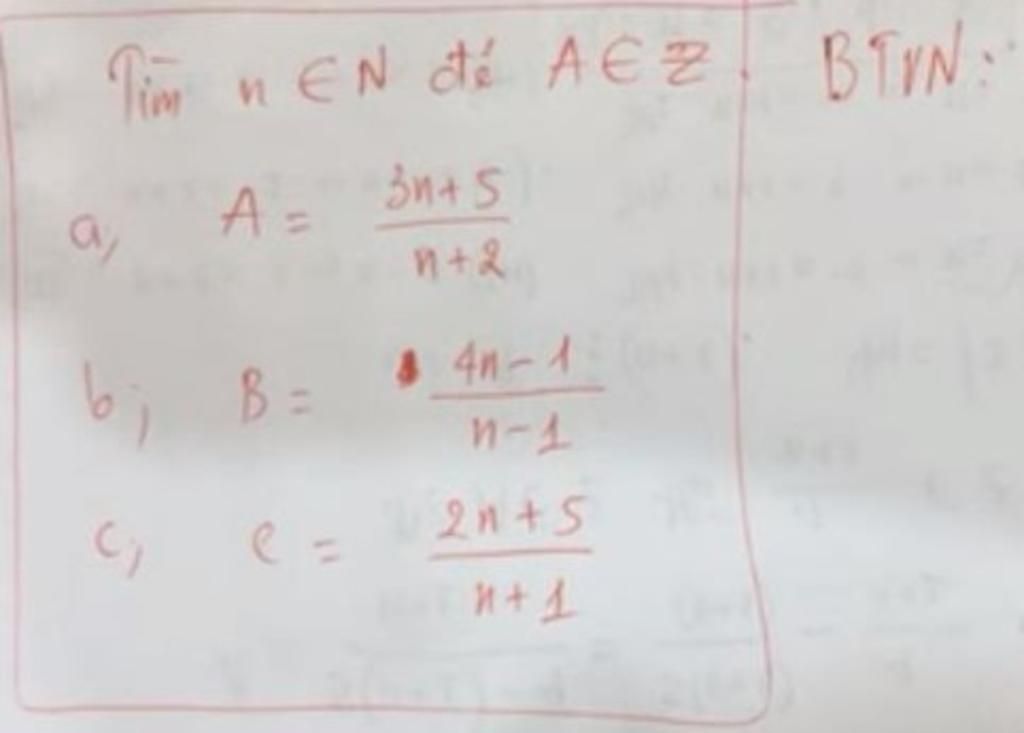 Tìm n ∈ N để A ∈ Z
BTVN:
a, A = \frac{3n+5}{n+2}
b, B = \frac{4n-1}{n-1}
c, C = \frac{2n+5}{n+1}